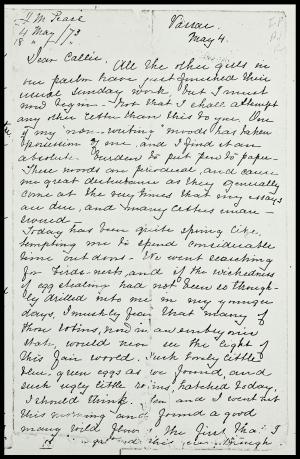 H. M. Pease
4 May /73
18 " "
Vassar.
May 4.
Dear Callie,
All the other girls in
our parlor have just finished their
usual Sunday work, but I must
now begin - Not that I shall attempt
any other letter than this to you. One
of my "non-writing" moods has taken
possession of me, and I find it an
absolute burden to put pen to paper -
These moods are periodical, and cause
me great disturbance as they generally
come at the very times that my essays
are due, and many letters unan-
swered -
Today has been quite spring like,
tempting me to spend considerable
time out doors - We went searching
for birds-nests, and if the wickedness
of egg stealing had not been so thorough-
ly drilled into me in my younger
days, I muchly fear that many of
those robins, now in an embryonic
state, would never see the light of
this fair world. Such lovely little
blue green eggs as we found, and
such ugly little robins, hatched today,
I should think. and I went out
this morning and found a good
many wild The first that I
this year. Though